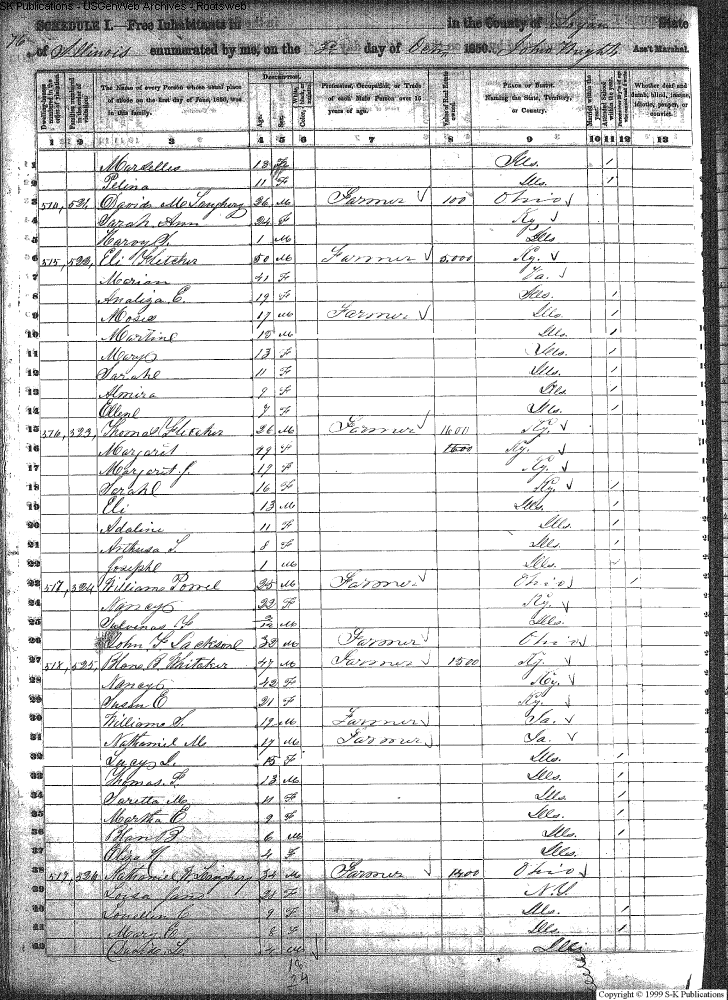 S-K Publications - USGenWeb Archives - Rootsweb
SCHEDULE I.—Free Inhabitants in in the County of Logan State
76 of Illinois enumerated by me, on the day of Octr 1850. John Wright Ass't Marshal.
Dwelling-houses numbered in the order of visitation. Families numbered in the order of visitation. The Name of every Person whose usual place of abode on the first day of June, 1850, was in this family. Description. Age. Sex. Color, White, black, or mulatto. Profession, Occupation, or Trade of each Male Person over 15 years of age. Value of Real Estate owned. Place of Birth. Naming the State, Territory, or Country. Married within the year. Attended School within the year. Whether deaf and dumb, blind, insane, idiotic, pauper, or convict.
1 2 3 4 5 6 7 8 9 10 11 12 13
1 Mardelles 13 F Ills. 1
2 Pelina 11 F Ills. 1
3 521 David 26 M Farmer 100 Ohio
4 Sarah Ann 24 F Ky
5 Harvy 1 M Ills
6 515 Eli Fletcher 50 M Farmer 5,000 Ky.
7 Marian 41 F Va.
8 Analiza E. 19 F Ills. 1
9 Moses 17 M Farmer Ills. 1
10 Martin 15 M Ills. 1
11 Mary 13 F Ills. 1
12 Sarah 11 F Ills. 1
13 Almira 9 F Ills. 1
14 Ellen 7 F Ills. 1
15 516 323 Thomas Fletcher 26 M Farmer 1600 Ky.
16 Margarit 49 F 1600 Ky.
17 Margarit J. 19 F Ky.
18 Sarah 16 F Ky 1
19 Eli 13 M Ills. 1
20 Adaline 11 F Ills. 1
21 Arthusa S. 8 F Ills. 1
22 Joseph 1 M Ills.
23 517, 324 William Powel 25 M Farmer Ohio 1
24 Nancy 22 F Ky.
25 M Ills.
26 John F Jackson 32 M Farmer Ohio
27 518, 525, Whitaker 47 M Farmer 1500 Ky.
28 Nancy 42 F Ky.
29 Susan E 21 F Ky.
30 William S. 19 M Farmer Ia.
31 Nathaniel M 17 M Farmer Ia.
32 Lucy L. 15 F Ills. 1
33 Thomas F. 13 M Ills. 1
34 Saretta M. 11 F Ills. 1
35 Martha E 9 F Ills. 1
36 B 6 M Ills. 1
37 Eliza 4 F Ills.
38 519, 526 Nathaniel 34 M Farmer 1400 Ohio
39 Jane 31 F N.Y.
40 9 F Ills. 1
41 Mary E 8 F Ills. 1
42 4 M Ills
Copyright © 1999 S-K Publications